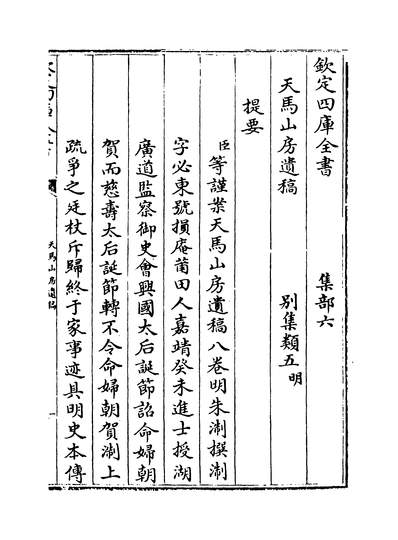 欽定四庫全書　集部六
天馬山房遺稿　別集類五明
提要
臣等謹案天馬山房遺稿八卷明朱淛撰淛
字必東號損庵莆田人嘉靖癸未進士授湖
廣道監察御史會興國太后誕節詔命婦朝
賀而慈壽太后誕節轉不令命婦朝賀淛上
疏爭之廷杖斥歸終于家事迹具明史本傳
天馬山房遺稿